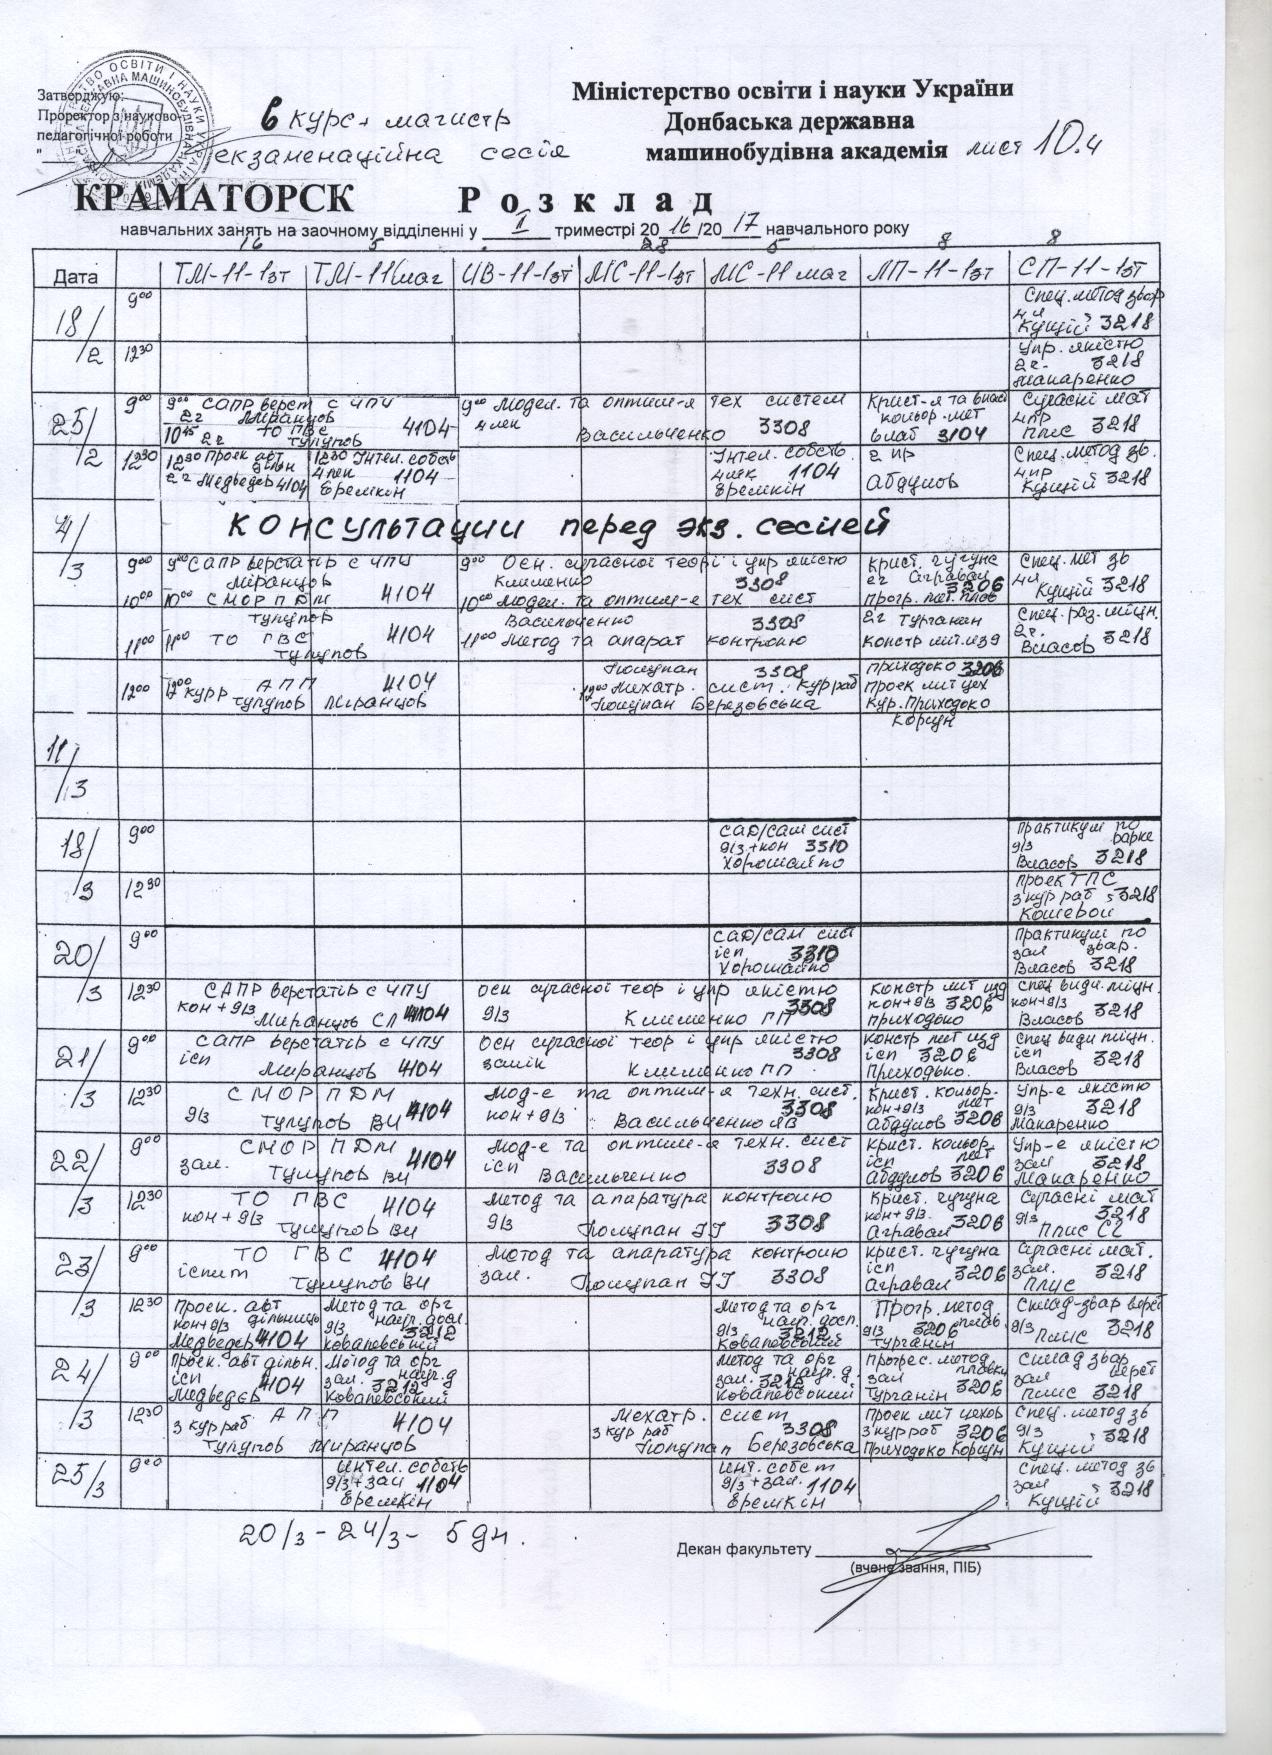 Затверджую:
Проректор з науково-
педагогічної роботи
6 курс + магистр
екзаменаційна сесія
Міністерство освіти і науки України
Донбаська державна
машинобудівна академія лист 10.4
КРАМАТОРСК Розклад
навчальних занять на заочному відділенні у II триместрі 2016/2017 навчального року
16 5 28 5 8 8
Дата ТМ-11-1зт ТМ-11маг ИВ-11-1зт МС-11-1зт МС-11 маг ЛП-11-1зт СП-11-1зт
18/2 9⁰⁰ Спец. метод звар
4ч Кущій 3218
12³⁰ Упр. якістю
2ч. 3218
Макаренко
25/2 9⁰⁰ 9⁰⁰ САПР верст с ЧПУ
2ч Міранцов
10⁴⁵ 2ч ТО ГВС 4104
Тулупов
9⁰⁰ Модел. та оптим-я тех систем
4лек Васильченко 3308
Крист-я та власт
кольор. мет
6лаб 3104
Сучасні мат
4пр
Плис 3218
12³⁰ 12³⁰ Проек авт
дільн
2ч Медведев 4104
12³⁰ Інтел. собств
4лек 1104
Еремкін
Інтел. собств.
4лек 1104
Еремкін
2 пр
Абдулов
Спец. метод зв.
4пр
Кущій 3218
4/3 Консультации перед экз. сесией
9⁰⁰ 9⁰⁰ САПР верстатів с ЧПУ
Міранцов 4104
9⁰⁰ Осн. сучасної теорі і упр якістю
Клименко 3308
Крист. чугуна
2ч Агравал 3206
Спец. мет зв
4ч
Кущій 3218
10⁰⁰ 10⁰⁰ СМОРПДМ
Тулупов 4104
10⁰⁰ Модел. та оптим-е тех сист
Васильченко 3308
Прогр. мет. плав
2ч Турганин
Спец. раз. міцн.
2ч.
Власов 3218
11⁰⁰ 11⁰⁰ ТО ГВС
Тулупов
11⁰⁰ Метод та апарат контролю
Полупан 3308
Констр лит. изд
Приходко 3206
12⁰⁰ 12⁰⁰ АПП 4104
курр Тулупов Міранцов
12⁰⁰ Мехатр. сист. Кур раб
Полупан Березовська
Проек лит цех
Кур. Приходько
Корсун
11/3
18/3 9⁰⁰ САD/САМ сист
д/з + кон 3310
Хорошайло
Практикум по
зварке
д/з
Власов 3218
12³⁰ Проек ТПС
з кур раб 3218
Кошевой
20/3 9⁰⁰ САD/САМ сист
ісп 3310
Хорошайло
Практикум по
зал звар.
Власов 3218
12³⁰ САПР верстатів с ЧПУ
кон + д/з Миранцов СЛ 4104
Осн сучасної теор і упр якістю
д/з Клименко ГП 3308
Констр лит изд
кон+д/з 3206
Приходько
Спец види міцн.
кон+д/з
Власов 3218
21/3 9⁰⁰ САПР верстатів с ЧПУ
ісп Миранцов 4104
Осн сучасної теор і упр якістю
залік Клименко ГП 3308
Констр лит изд
ісп 3206
Приходько.
Спец види міцн.
ісп
Власов 3218
12³⁰ СМОРПДМ
д/з Тулупов ВИ 4104
Мод-е та оптим-я техн. сист.
кон + д/з Васильченко ЯВ 3308
Крист. кольор.
мет
кон+д/з
Абдулов 3206
Упр-е якістю
д/з 3218
Макаренко
22/3 9⁰⁰ СМОРПДМ
зал. Тулупов ВИ 4104
Мод-е та оптим-я техн. сист
ісп Васильченко 3308
Крист. кольор.
ісп мет
Абдулов 3206
Упр-е якістю
зал 3218
Макаренко
12³⁰ ТО ГВС 4104
кон + д/з Тулупов ВИ
Метод та апаратура контролю
д/з Полупан 3308
Крист. чугуна
кон + д/з.
Агравал 3206
Сучасні мат
д/з 3218
Плис СГ
23/3 9⁰⁰ ТО ГВС 4104
іспит Тулупов ВИ
Метод та апаратура контролю
зал. Полупан 3308
Крист. чугуна
ісп
Агравал 3206
Сучасні мат.
зал. 3218
Плис
12³⁰ Проек. авт
кон+д/з дільниць
Медведєв 4104
Метод та орг
наук. досл.
д/з 3212
Ковалевський
Метод та орг
наук. досл.
д/з 3212
Ковалевський
Прогр. метод
плав.
д/з 3206
Турганін
Склад-звар верст
д/з 3218
Плис
24/3 9⁰⁰ Проек. авт дільн.
ісп 4104
Медведєв
Метод та орг
наук. д
зал. 3212
Ковалевский
Метод та орг
наук. д.
зал. 3212
Ковалевский
Прогрес. метод
плавки
зал
Турганін 3206
Склад звар
верст
зал
Плис 3218
12³⁰ АПП 4104
з кур раб
Тулупов Миранцов
Мехатр. сист
з кур раб 3308
Полупан Березовська
Проек лит цехов
з кур раб 3206
Приходько Корсун
Спец. метод зв
д/з 3218
Кущій
25/3 9⁰⁰ Интел. собств
д/з + зал 1104
Еремкін
Инт. собст
д/з + зал. 1104
Еремкін
Спец. метод зв
зал 3218
Кущій
20/3 - 24/3 - 5 дн.
Декан факультету
(вчене звання, ПІБ)